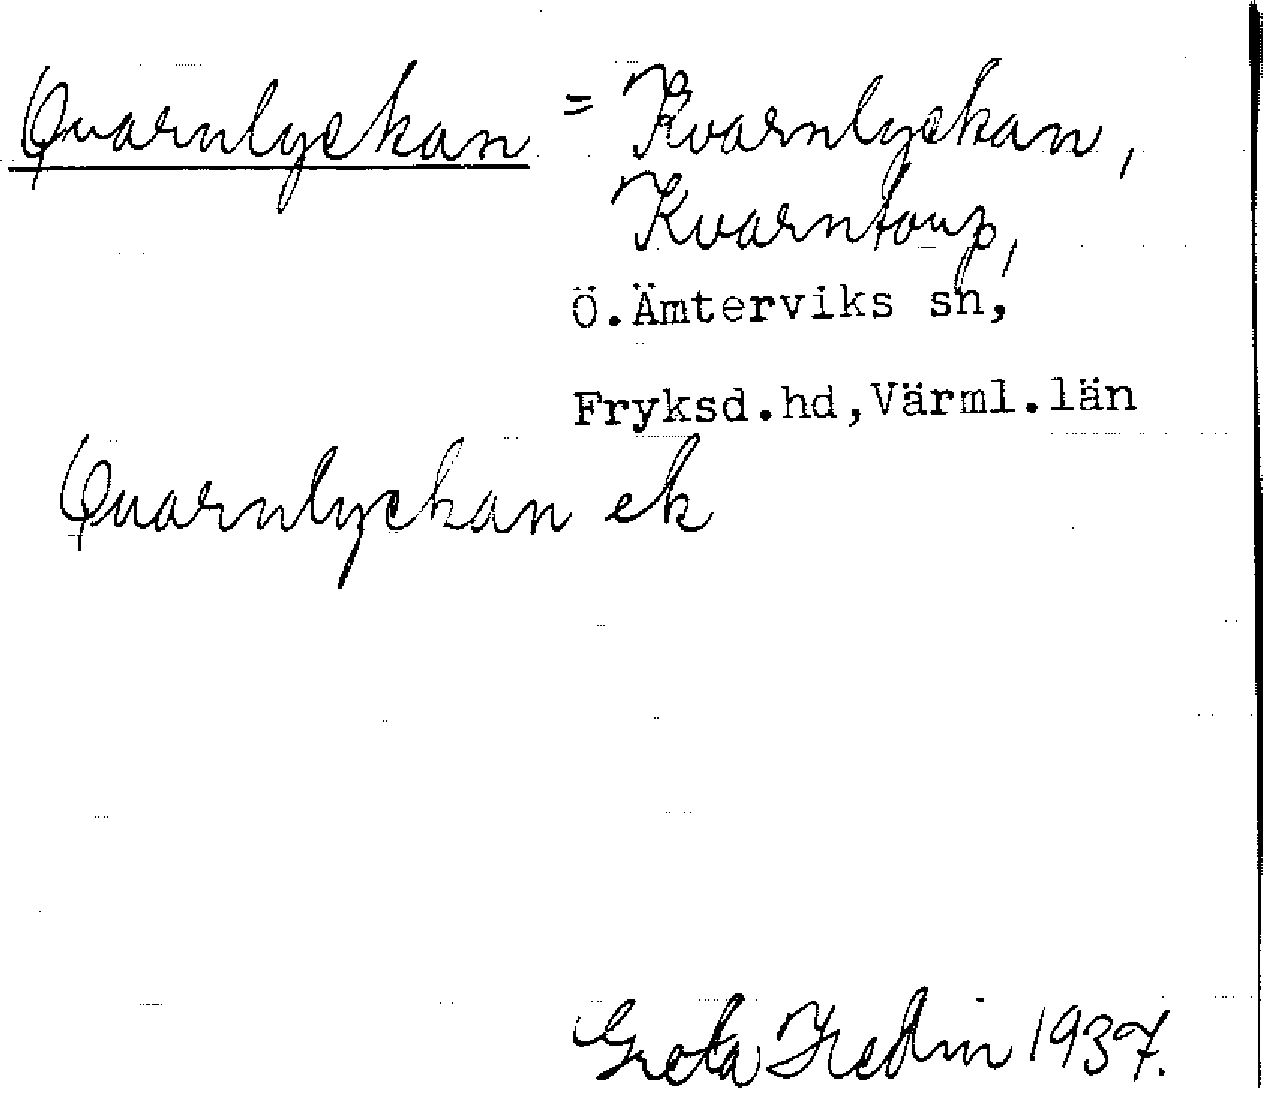 Qvarnlyckan = Kvarnlyckan,
Kvarntorp,
Ö.Ämterviks sn,
Fryksd.hd,Värml.län
Qvarnlyckan ek
Greta Hedin 1937.